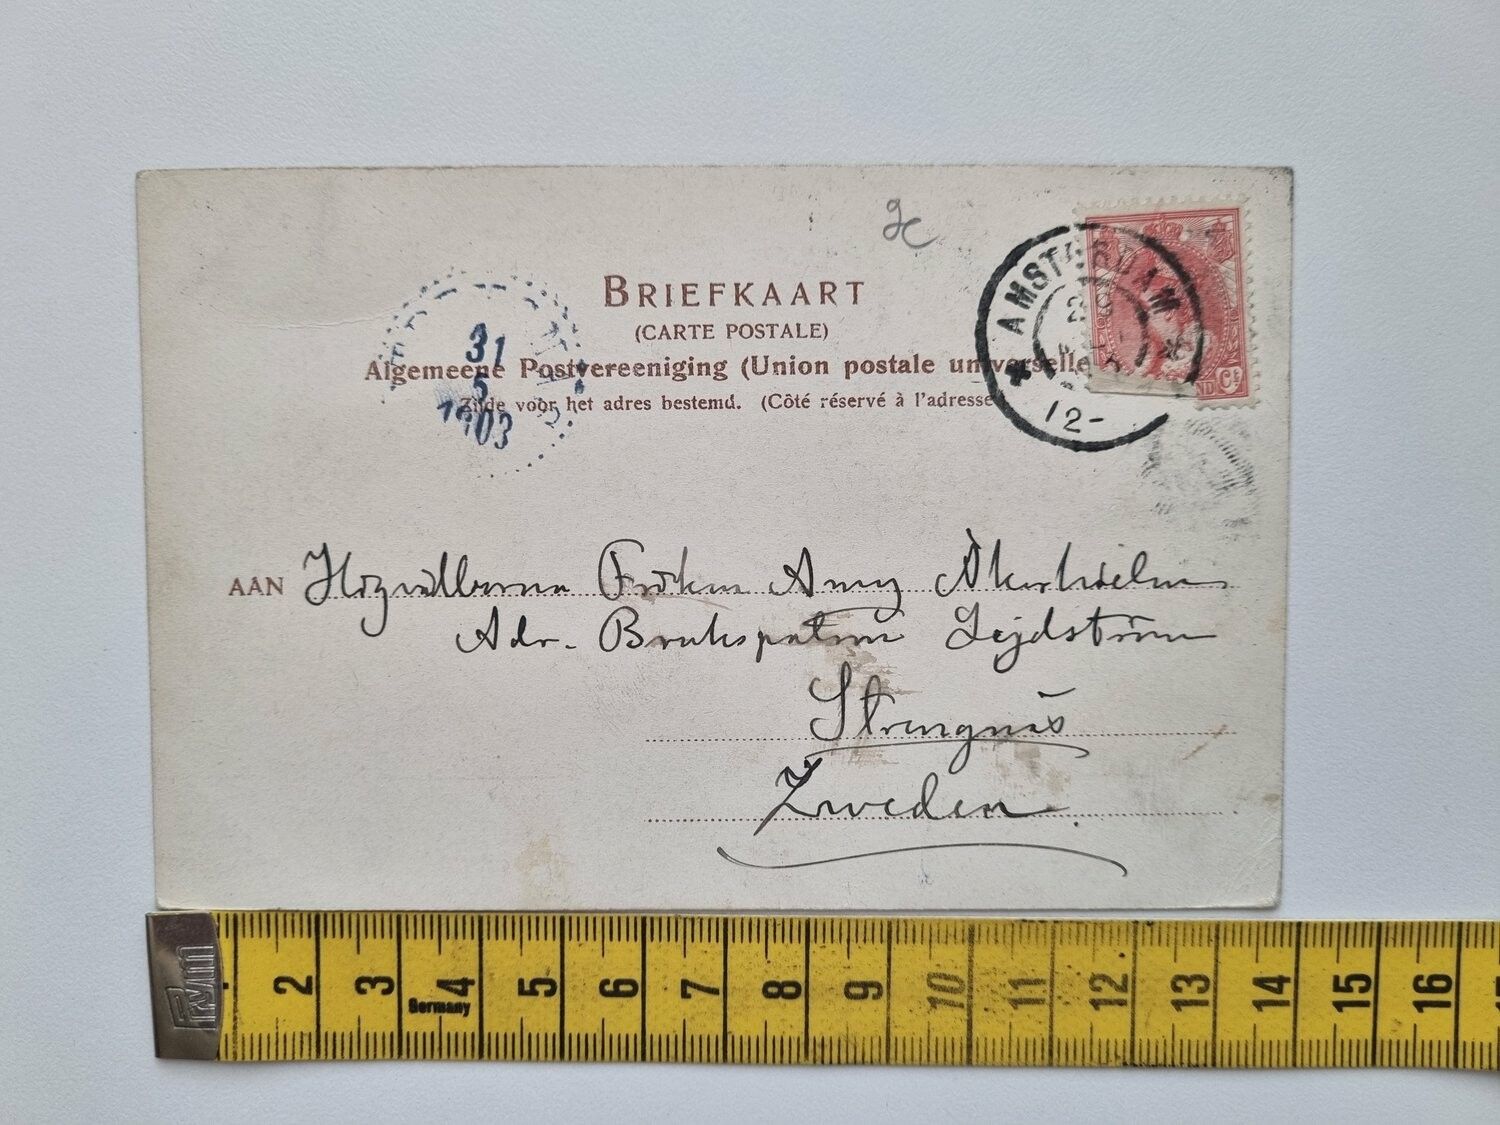 gc
BRIEFKAART
(CARTE POSTALE)
Algemeene Postvereeniging (Union postale universelle
Zijde voor het adres bestemd. (Côté réservé à l'adresse
31
5
1903
AMSTERDAM
12-
Ct
AAN Högvälborna Fröken Amy Åkerhielm
Adr. Brukspatron Lejdström
Strengnäs
Zweden.
Prym
2 3 4 5 6 7 8 9 10 11 12 13 14 15 16
Germany